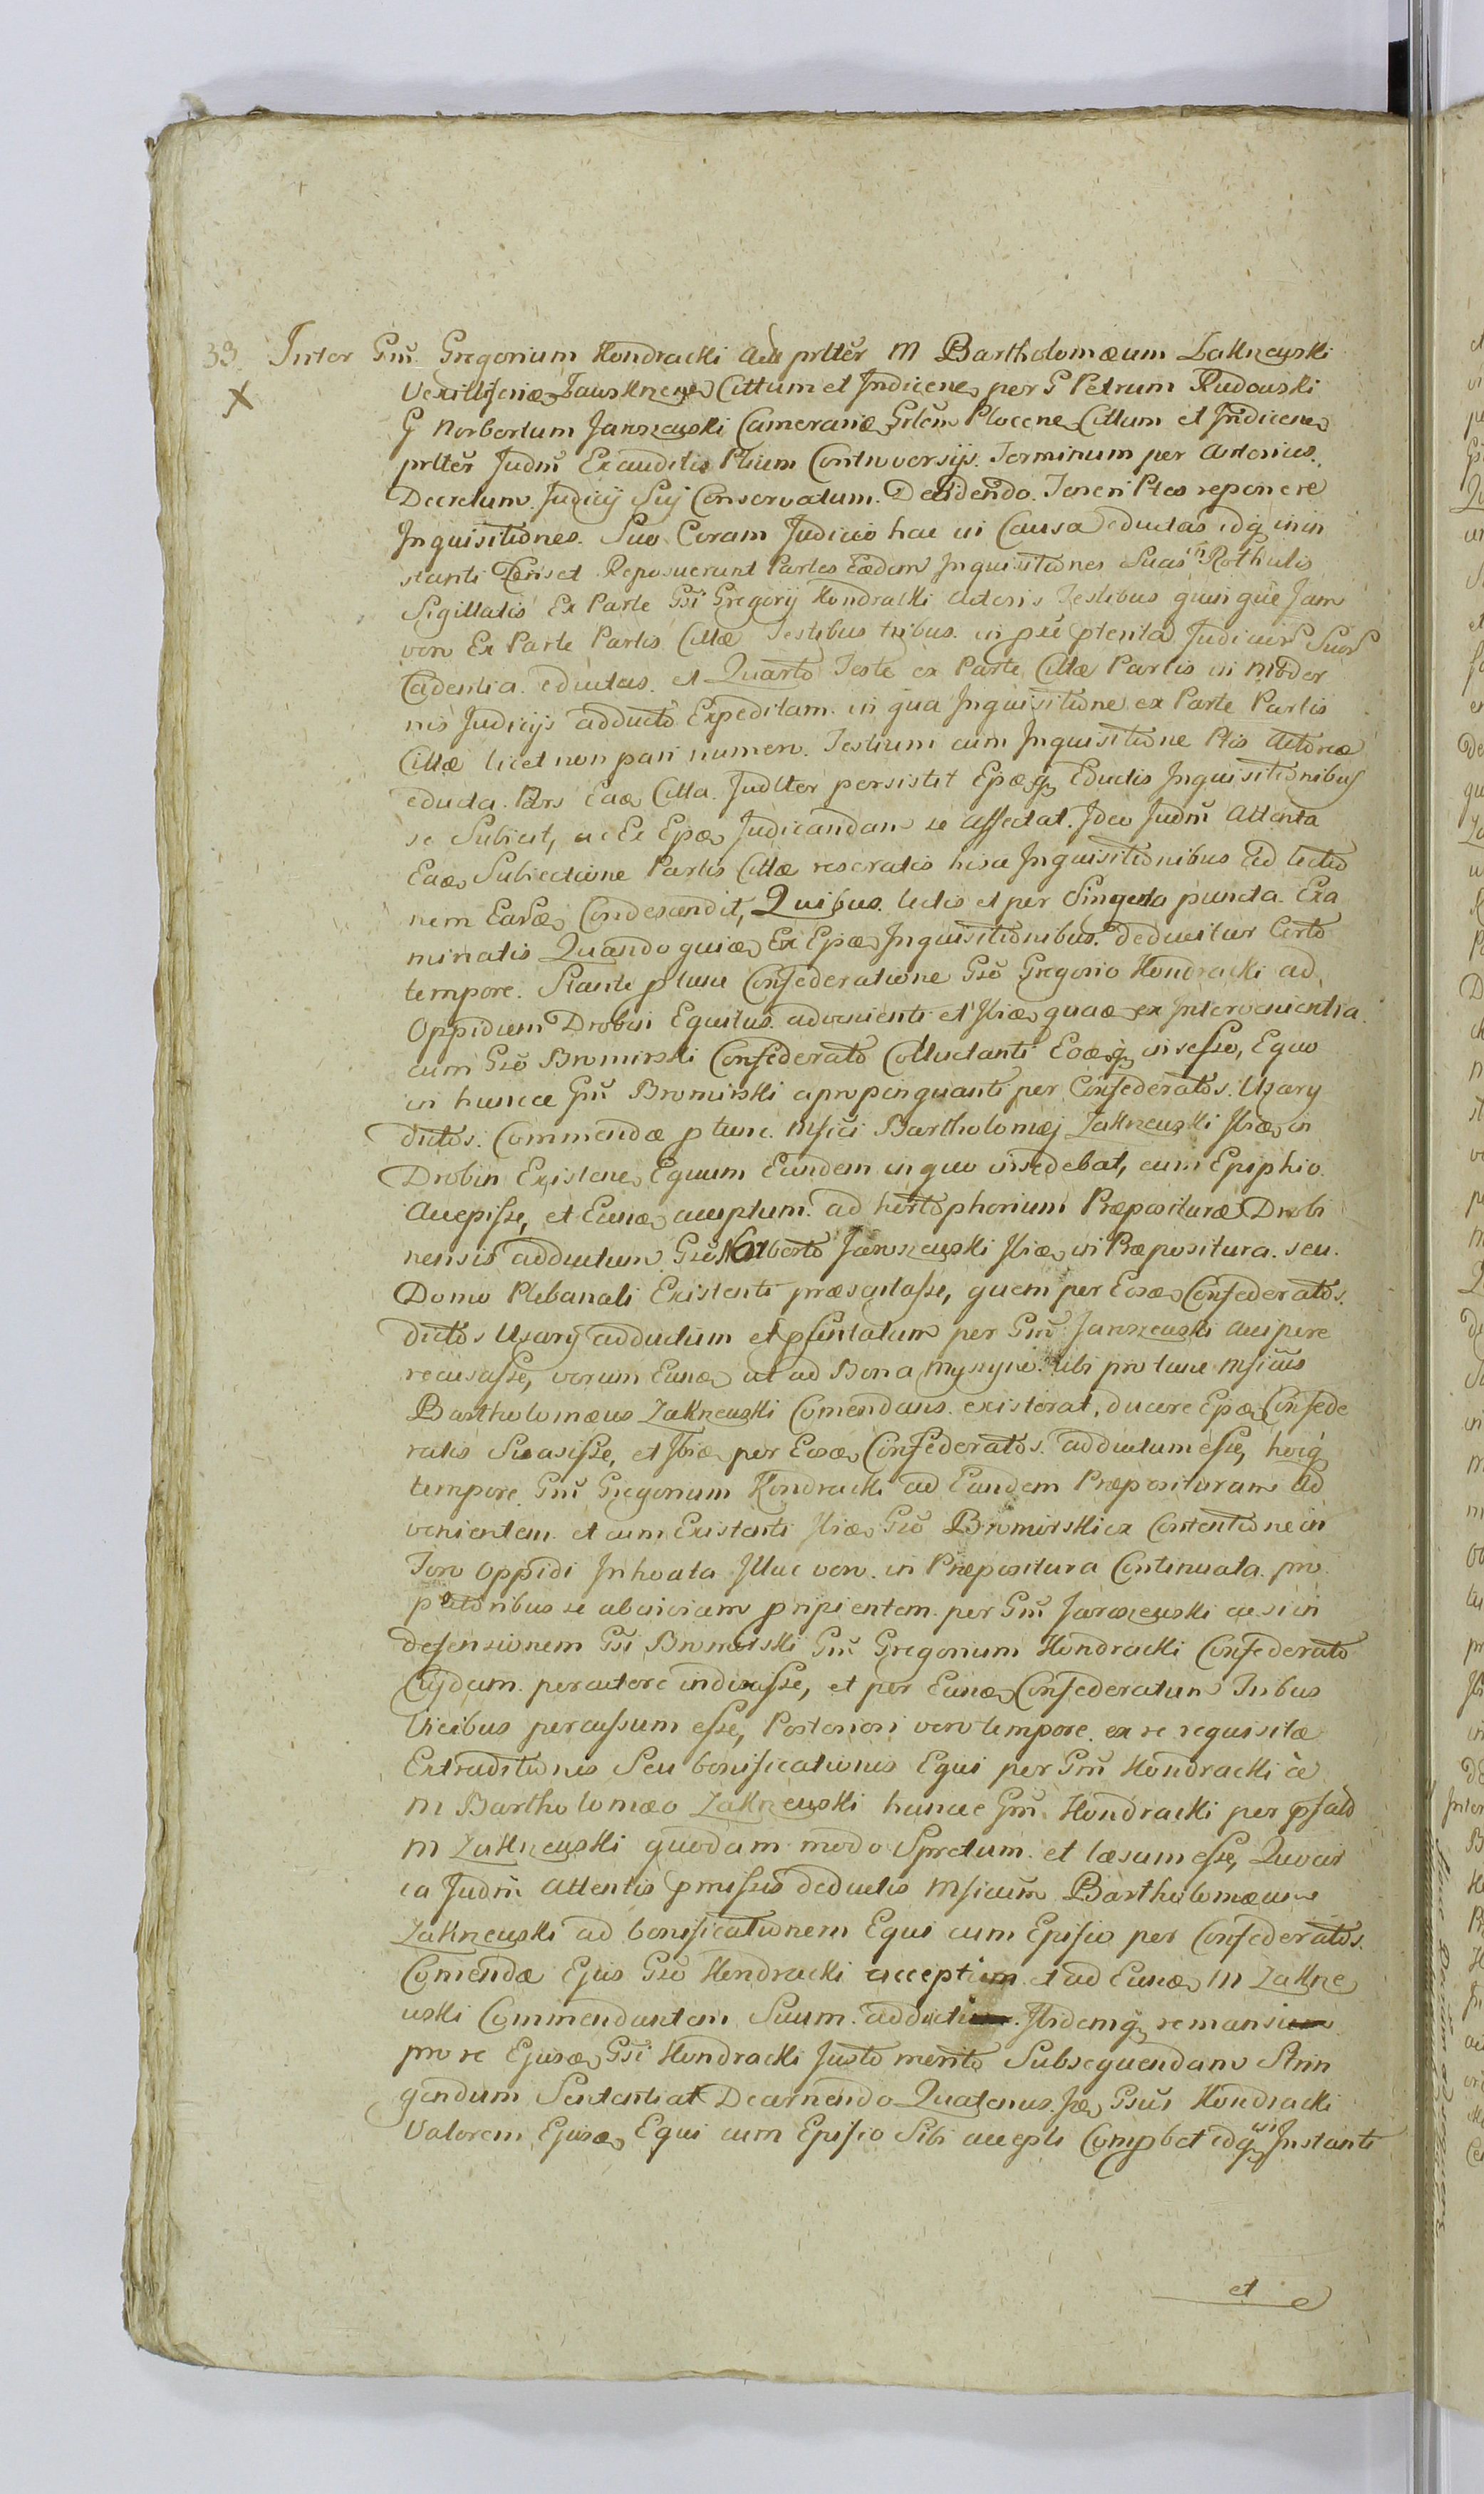 33. Inter Gm̃ Gregorium Kondracki Act prltẽr M Bartholomæum Zakrzewski
X
Vexilliferiæ Zawskrzene Cittum et Indicene per G Petrum Rudowski
G Norbertum Jaroszewski Camerariæ Grlem Plocene Cittum et Indicene
prltẽr Judm̃ Exauditis Ptium Controversijs. Terminum per anterius
Decretum Judicij Sui Conservatum. Decidendo. Teneri Ptes reponere
Inquisitiones. Suo Coram Judicio hac in Causa eductas idq in in
stanti Censet Reposuerunt Partes Eædem Inquisitiones Suas in Rothulis
Sigillatis Ex Parte Gsi Gregorij Kondracki Actoris Testibus quinque Jam
vero Ex Parte Partis Cittæ Testibus tribus in ptenta Judicior Suor
Cadentia eductas. et Quarto Teste ex Parte Cittæ Partis in Moder
nis Judicijs adducto Expeditam in qua Inquisitione ex Parte Partis
Cittæ licet non pari numero Testium cum Inquisitione Ptis Actoreæ
educta. Pars Eaæ Citta. Judlter persistit Epæq Eductis Inquisitionibus
se Subiicit, ac Ex Epæ Judicandam se affectat. Ideo Judm̃ Attenta
Eaæ Subiectione Partis Cittæ reseratis hisce Inquisitionibus Ad lectio
nem Earæ Condescendit, Quibus lectis et per Singula puncta Exa
minatis Quandoquiæ Ex Epæ Inquisitionibus. deducitur Certo
tempore. Stante p tunc Confederatione Gso Gregorio Kondracki ad
Oppidum Drobin Equitus advenienti et Ibiæ quaæ ex Intervenientia
cum Gso Bromirski Confederato Colluctanti Eoæq insesso, Equo
in hunce Gm̃ Bromirski apropinquanti per Confederatos. Usary
dictos. Commendæ p tunc. Msici Bartholomæj Zakrzewski Ibiæ in
Drobin Existene Equum Eundem in quo insedebat, cum Epiphio.
Accepisse, et Eunæ acceptum ad hortophorium Præposituræ Drobi
nensis adductum Gso Norberto Jaroszewski Ibiæ in Præpositura. seu.
Domo Plebanali Existenti præsentasse, quem per Eosæ Confederatos.
dictos Usary adductum et psentatum per Gm̃ Jaroszewski accipere
recusasse, verum Eunæ ut ad Bona Myszyno. Ubi pro tunc Msicus
Bartholomæus Zakrzewski Comendans existerat, ducere Epæ Confede
ratis Suasisse, et Ibiæ per Eosæ Confederatos. adductum esse, hocq
tempore Gm̃ Gregorium Kondracki ad Eandem Præposituram ad
venientem et cum Existenti Ibiæ Gso Bromirski ex Contentione in
Foro Oppidi Inhoata Illuc vero in Præpositura Continuata. pro
se ab invicem pripientem per Gm̃ Jaroszewski ac si in
defensionem Gsi Bromirski Gm̃ Gregorium Kondracki Confederato
Cuidam percutere indixisse, et per Eunæ Confederatum Tribus
Vicibus percussum esse, Posteriori vero tempore ex re requisitæ
Extraditionis Seu bonificationis Equi per Gm̃ Kondracki à
M Bartholomæo Zakrzewski huncce Gm̃ Kondracki per psato
M Zakrzewski quodam modo Spretum et læsum esse, Quocir
ca Judm̃ Attentis pmissis deductis Msicum Bartholomæum
Zakrzewski ad bonificationem Equi cum Episio per Confederatos.
Comendæ Ejus Gso Kondracki acceptium et ad Eunæ M Zakrze
wski Commendantem Suum adducti Ibidemq remansi
pro re Ejusæ Gsi Kondracki Justo merito Subsequendam Strin
gendum Sententiat Decernendo Quatenus Ipæ Gsus Kondracki
Valorem Ejusæ Equi cum Episio Sibi accepti Compbet idq in Instanti
et